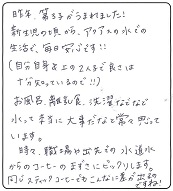 昨年、第3子がうまれました!
新生児の頃から、アクアスの水での
生活で、毎日安心です!!
(自分自身と上の2人まで良さは
十分知っているので!!)
お風呂、離乳食、洗濯などなど
水って本当に大事だなと常々思って
います。
時々、職場や出先での水道水
からのコーヒーのまずさにビックリします。
同じスティックコーヒーでもこんなに差が出るの
ですね!